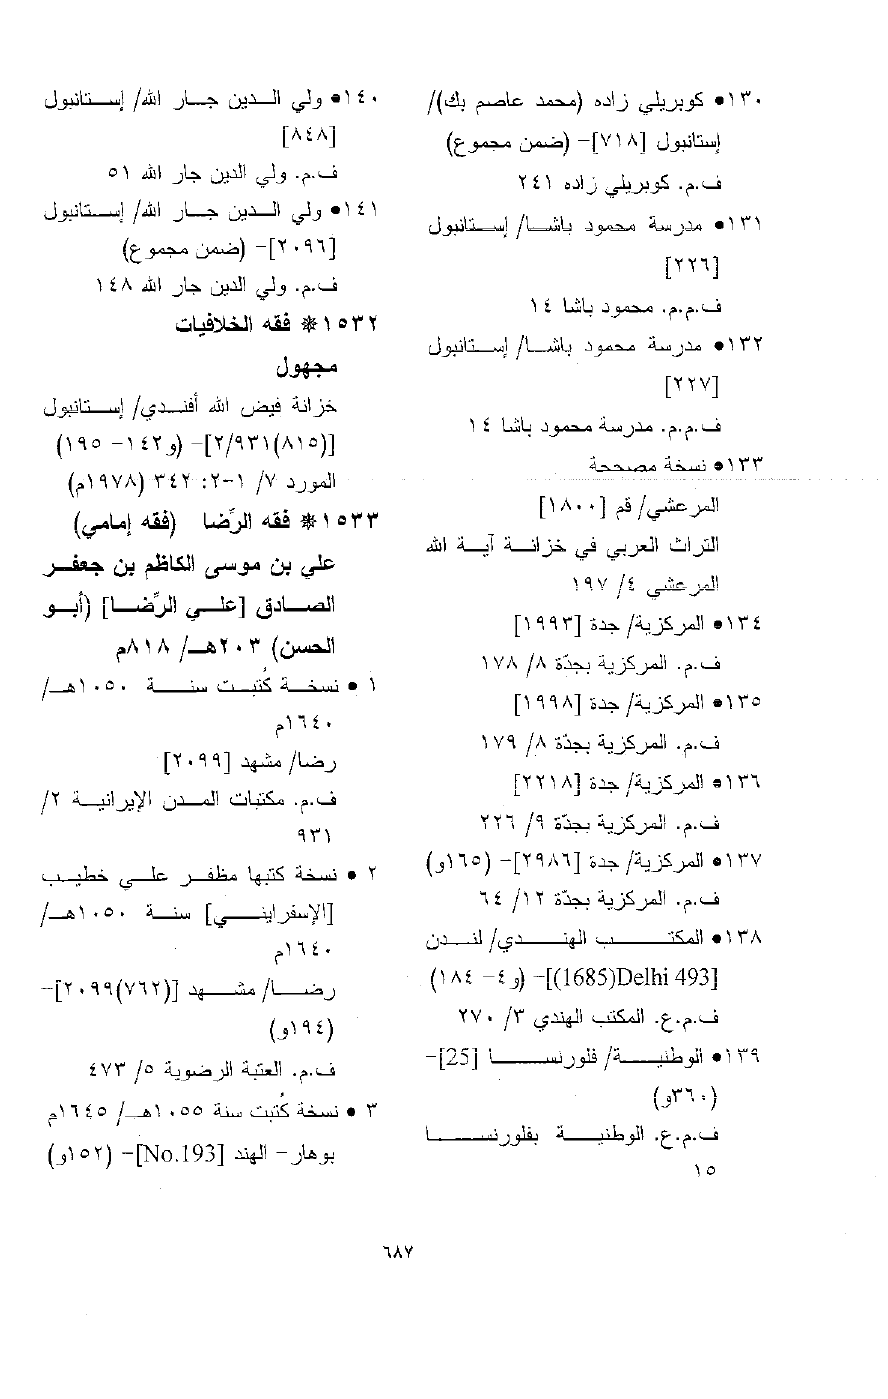 ١٣٠• كوبريلي زاده (محمد عاصم بك)/
إستانبول [٧١٨]- (ضمن مجموع)
ف.م. كوبريلي زاده ٢٤١
١٣١• مدرسة محمود باشا/ إستانبول
[٢٢٦]
ف.م.م. محمود باشا ١٤
١٣٢• مدرسة محمود باشا/ إستانبول
[٢٢٧]
ف.م.م. مدرسة محمود باشا ١٤
١٣٣• نسخة مصححة
المرعشي/ قم [١٨٠٠]
التراث العربي في خزانة آية الله
المرعشي ٤/ ١٩٧
١٣٤• المركزية/ جدة [١٩٩٣]
ف.م. المركزية بجدّة ٨/ ١٧٨
١٣٥• المركزية/ جدة [١٩٩٨]
ف.م. المركزية بجدّة ٨/ ١٧٩
١٣٦• المركزية/ جدة [٢٢١٨]
ف.م. المركزية بجدّة ٩/ ٢٢٦
١٣٧• المركزية/ جدة [٢٩٨٦]- (١٦٥و)
ف.م. المركزية بجدّة ١٢/ ٦٤
١٣٨• المكتب الهندي/ لندن
[Delhi 493(1685)]- (و٤- ١٨٤)
ف.م.ع. المكتب الهندي ٣/ ٢٧٠
١٣٩• الوطنية/ فلورنسا [25]-
(٣٦٠و)
ف.م.ع. الوطنية بفلورنسا
١٥
١٤٠• ولي الدين جار الله/ إستانبول
[٨٤٨]
ف.م. ولي الدين جار الله ٥١
١٤١• ولي الدين جار الله/ إستانبول
[٢٠٩٦]- (ضمن مجموع)
ف.م. ولي الدين جار الله ١٤٨
١٥٣٢* فقه الخلافيات
مجهول
خزانة فيض الله أفندي/ إستانبول
[(٨١٥)٢/٩٣١]- (و١٤٢- ١٩٥)
المورد ٧/ ١-٢: ٣٤٢ (١٩٧٨م)
١٥٣٣* فقه الرِّضا (فقه إمامي)
علي بن موسى الكاظم بن جعفر
الصادق [علي الرِّضا] (أبو
الحسن) ٢٠٣هـ/ ٨١٨م
١ • نسخة كُتبت سنة ١٠٥٠هـ/
١٦٤٠م
رضا/ مشهد [٢٠٩٩]
ف.م. مكتبات المدن الإيرانية ٢/
٩٣١
٢ • نسخة كتبها مظفر علي خطيب
[الإسفرايني] سنة ١٠٥٠هـ/
١٦٤٠م
رضا/ مشهد [(٧٦٢)٢٠٩٩]-
(١٩٤و)
ف.م. العتبة الرضوية ٥/ ٤٧٣
٣ • نسخة كُتبت سنة ١٠٥٥هـ/ ١٦٤٥م
بوهار- الهند [No.193]- (١٥٢و)
٦٨٧